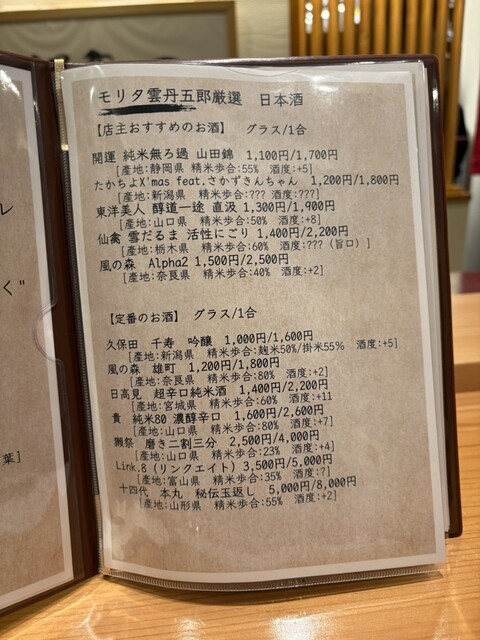 モリタ雲丹五郎厳選　日本酒
【店主おすすめのお酒】　グラス/1合
開運 純米無ろ過 山田錦　1,100円/1,700円
[産地:静岡県　精米歩合:55%　酒度:+5]
たかちよX'mas feat.さかずきんちゃん　1,200円/1,800円
[産地:新潟県　精米歩合:???　酒度:???]
東洋美人 醇道一途 直汲　1,300円/1,900円
[産地:山口県　精米歩合:50%　酒度:+8]
仙禽 雪だるま 活性にごり　1,400円/2,200円
[産地:栃木県　精米歩合:60%　酒度:???（旨口）]
風の森　Alpha2 1,500円/2,500円
[産地:奈良県　精米歩合:40%　酒度:+2]
【定番のお酒】　グラス/1合
久保田　千寿　吟醸　1,000円/1,600円
[産地:新潟県　精米歩合:麹米50%/掛米55%　酒度:+5]
風の森 雄町　1,200円/1,800円
[産地:奈良県　精米歩合:80%　酒度:+2]
日高見　超辛口純米酒　1,400円/2,200円
[産地:宮城県　精米歩合:60%　酒度:+11
貴　純米80 濃醇辛口　1,600円/2,600円
[産地:山口県　精米歩合:80%　酒度:+7]
獺祭　磨き二割三分　2,500円/4,000円
[産地:山口県　精米歩合:23%　酒度:+4]
Link.8（リンクエイト）3,500円/5,000円
[産地:富山県　精米歩合:35%　酒度:?]
十四代　本丸　秘伝玉返し　5,000円/8,000円
[産地:山形県　精米歩合:55%　酒度:+2]
レ
く"
葉]